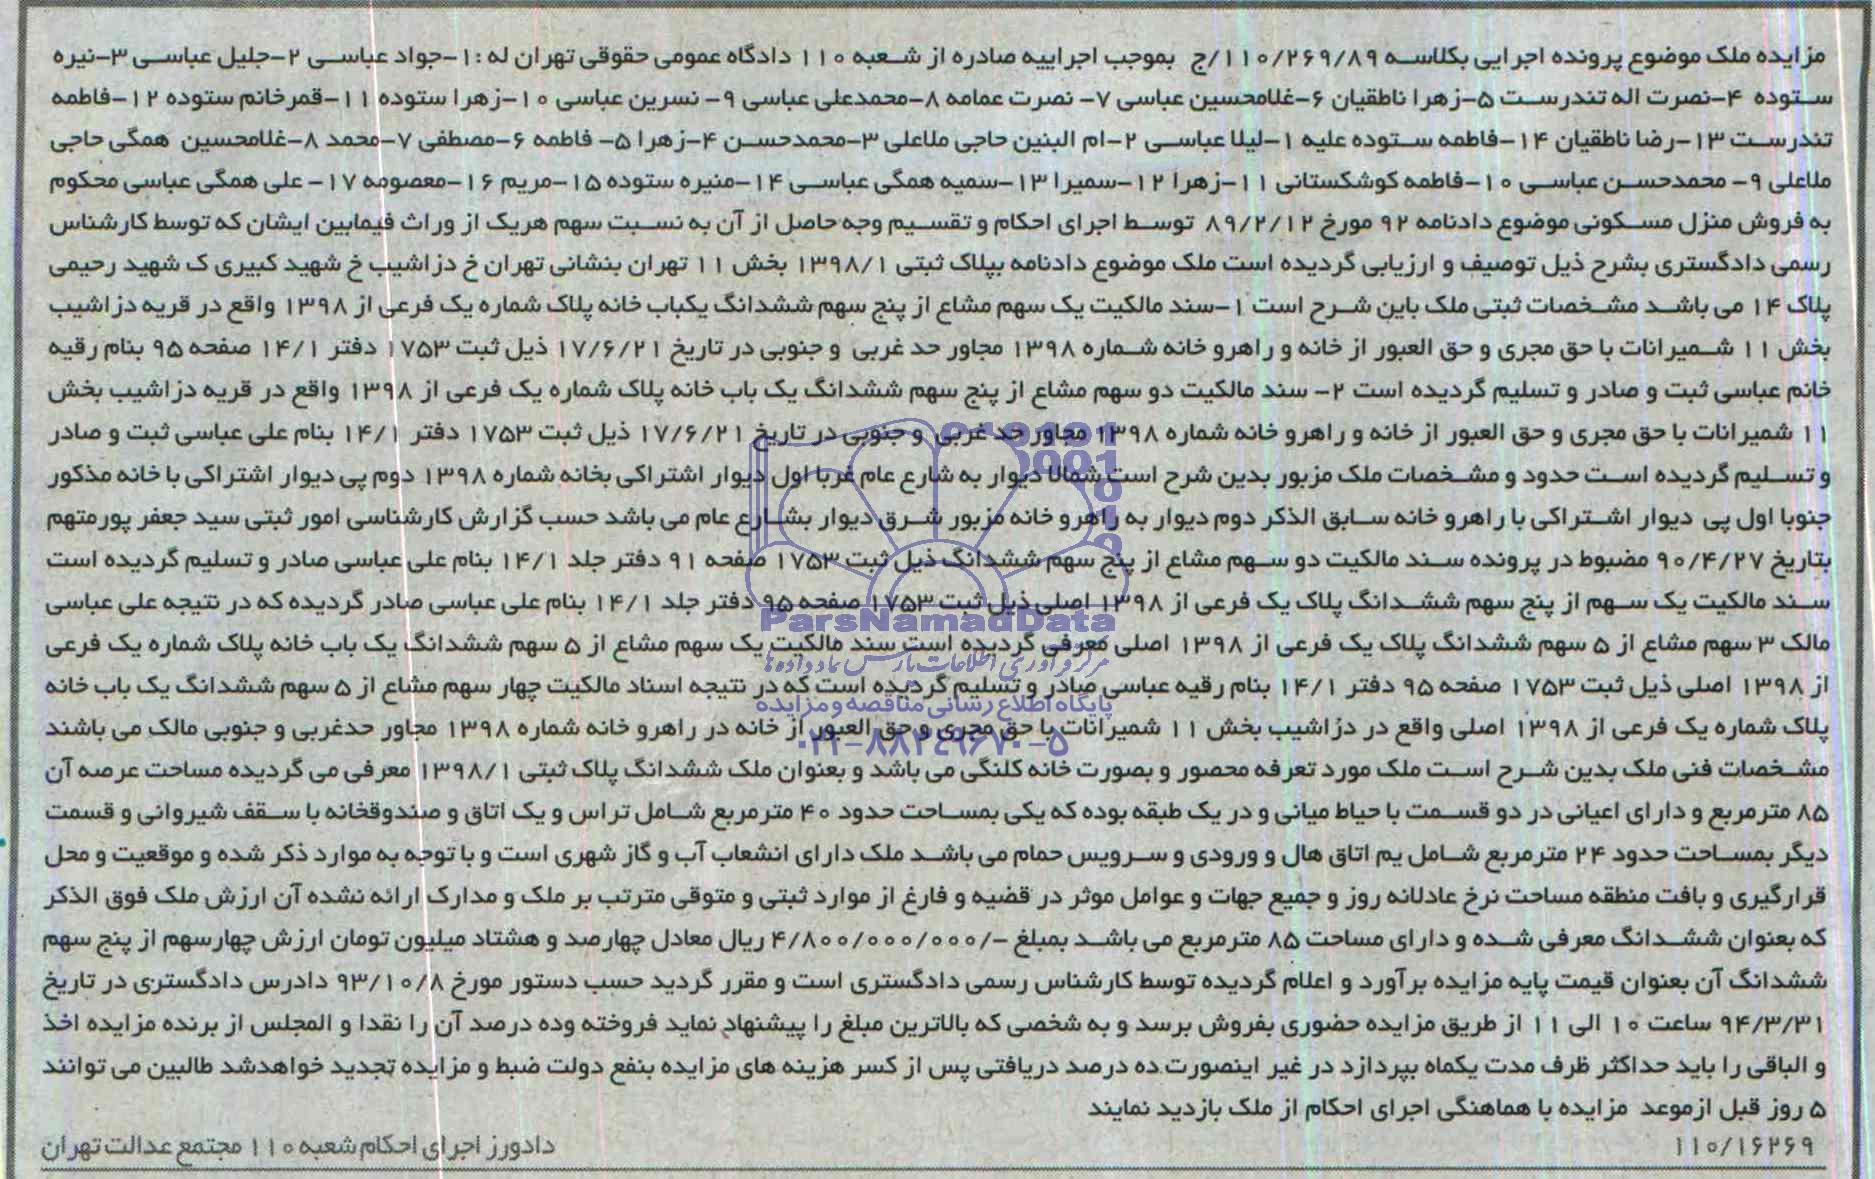 مزایده ملک موضوع پرونده اجرایی بکلاسه ۱۱۰/۲۶۹/۸۹/ج بموجب اجراییه صادره از شعبه ۱۱۰ دادگاه عمومی حقوقی تهران له :۱-جواد عباسی ۲-جلیل عباسی ۳-نیره
ستوده ۴-نصرت اله تندرست ۵-زهرا ناطقیان ۶-غلامحسین عباسی ۷- نصرت عمامه ۸-محمدعلی عباسی ۹- نسرین عباسی ۱۰-زهرا ستوده ۱۱-قمرخانم ستوده ۱۲-فاطمه
تندرست ۱۳-رضا ناطقیان ۱۴-فاطمه ستوده علیه ۱-لیلا عباسی ۲-ام البنین حاجی ملاعلی ۳-محمدحسن ۴-زهرا ۵- فاطمه ۶-مصطفی ۷-محمد ۸-غلامحسین همگی حاجی
ملاعلی ۹- محمدحسن عباسی ۱۰-فاطمه کوشکستانی ۱۱-زهرا ۱۲-سمیرا ۱۳-سمیه همگی عباسی ۱۴-منیره ستوده ۱۵-مریم ۱۶-معصومه ۱۷- علی همگی عباسی محکوم
به فروش منزل مسکونی موضوع دادنامه ۹۲ مورخ ۸۹/۲/۱۲ توسط اجرای احکام و تقسیم وجه حاصل از آن به نسبت سهم هریک از وراث فیمابین ایشان که توسط کارشناس
رسمی دادگستری بشرح ذیل توصیف و ارزیابی گردیده است ملک موضوع دادنامه بپلاک ثبتی ۱۳۹۸/۱ بخش ۱۱ تهران بنشانی تهران خ دزاشیب خ شهید کبیری ک شهید رحیمی
پلاک ۱۴ می باشد مشخصات ثبتی ملک باین شرح است ۱-سند مالکیت یک سهم مشاع از پنج سهم ششدانگ یکباب خانه پلاک شماره یک فرعی از ۱۳۹۸ واقع در قریه دزاشیب
بخش ۱۱ شمیرانات با حق مجری و حق العبور از خانه و راهرو خانه شماره ۱۳۹۸ مجاور حد غربی و جنوبی در تاریخ ۱۷/۶/۲۱ ذیل ثبت ۱۷۵۳ دفتر ۱۴/۱ صفحه ۹۵ بنام رقیه
خانم عباسی ثبت و صادر و تسلیم گردیده است ۲- سند مالکیت دو سهم مشاع از پنج سهم ششدانگ یک باب خانه پلاک شماره یک فرعی از ۱۳۹۸ واقع در قریه دزاشیب بخش
۱۱ شمیرانات با حق مجری و حق العبور از خانه و راهرو خانه شماره ۱۳۹۸ مجاور حد غربی و جنوبی در تاریخ ۱۷/۶/۲۱ ذیل ثبت ۱۷۵۳ دفتر ۱۴/۱ بنام علی عباسی ثبت و صادر
و تسلیم گردیده است حدود و مشخصات ملک مزبور بدین شرح است شمالا دیوار به شارع عام غربا اول دیوار اشتراکی بخانه شماره ۱۳۹۸ دوم پی دیوار اشتراکی با خانه مذکور
جنوبا اول پی دیوار اشتراکی با راهرو خانه سابق الذکر دوم دیوار به راهرو خانه مزبور شرق دیوار بشارع عام می باشد حسب گزارش کارشناسی امور ثبتی سید جعفر پورمتهم
بتاریخ ۹۰/۴/۲۷ مضبوط در پرونده سند مالکیت دو سهم مشاع از پنج سهم ششدانگ ذیل ثبت ۱۷۵۳ صفحه ۹۱ دفتر جلد ۱۴/۱ بنام علی عباسی صادر و تسلیم گردیده است
سند مالکیت یک سهم از پنج سهم ششدانگ پلاک یک فرعی از ۱۳۹۸ اصلی ذیل ثبت ۱۷۵۳ صفحه ۹۵ دفتر جلد ۱۴/۱ بنام علی عباسی صادر گردیده که در نتیجه علی عباسی
مالک ۳ سهم مشاع از ۵ سهم ششدانگ پلاک یک فرعی از ۱۳۹۸ اصلی معرفی گردیده است سند مالکیت یک سهم مشاع از ۵ سهم ششدانگ یک باب خانه پلاک شماره یک فرعی
از ۱۳۹۸ اصلی ذیل ثبت ۱۷۵۳ صفحه ۹۵ دفتر ۱۴/۱ بنام رقیه عباسی صادر و تسلیم گردیده است که در نتیجه اسناد مالکیت چهار سهم مشاع از ۵ سهم ششدانگ یک باب خانه
پلاک شماره یک فرعی از ۱۳۹۸ اصلی واقع در دزاشیب بخش ۱۱ شمیرانات با حق مجری و حق العبور از خانه در راهرو خانه شماره ۱۳۹۸ مجاور حدغربی و جنوبی مالک می باشند
مشخصات فنی ملک بدین شرح است ملک مورد تعرفه محصور و بصورت خانه کلنگی می باشد و بعنوان ملک ششدانگ پلاک ثبتی ۱۳۹۸/۱ معرفی می گردیده مساحت عرصه آن
۸۵ مترمربع و دارای اعیانی در دو قسمت با حیاط میانی و در یک طبقه بوده که یکی بمساحت حدود ۴۰ مترمربع شامل تراس و یک اتاق و صندوقخانه با سقف شیروانی و قسمت
دیگر بمساحت حدود ۲۴ مترمربع شامل یم اتاق هال و ورودی و سرویس حمام می باشد ملک دارای انشعاب آب و گاز شهری است و با توجه به موارد ذکر شده و موقعیت و محل
قرارگیری و بافت منطقه مساحت نرخ عادلانه روز و جمیع جهات و عوامل موثر در قضیه و فارغ از موارد ثبتی و متوقی مترتب بر ملک و مدارک ارائه نشده آن ارزش ملک فوق الذکر
که بعنوان ششدانگ معرفی شده و دارای مساحت ۸۵ مترمربع می باشد بمبلغ -/۴/۸۰۰/۰۰۰/۰۰۰ ریال معادل چهارصد و هشتاد میلیون تومان ارزش چهارسهم از پنج سهم
ششدانگ آن بعنوان قیمت پایه مزایده برآورد و اعلام گردیده توسط کارشناس رسمی دادگستری است و مقرر گردید حسب دستور مورخ ۹۳/۱۰/۸ دادرس دادگستری در تاریخ
۹۴/۳/۳۱ ساعت ۱۰ الی ۱۱ از طریق مزایده حضوری بفروش برسد و به شخصی که بالاترین مبلغ را پیشنهاد نماید فروخته وده درصد آن را نقدا و المجلس از برنده مزایده اخذ
و الباقی را باید حداکثر ظرف مدت یکماه بپردازد در غیر اینصورت ده درصد دریافتی پس از کسر هزینه های مزایده بنفع دولت ضبط و مزایده تجدید خواهدشد طالبین می توانند
۵ روز قبل ازموعد مزایده با هماهنگی اجرای احکام از ملک بازدید نمایند
۱۱۰/۱۶۲۶۹ دادورز اجرای احکام شعبه ۱۱۰ مجتمع عدالت تهران
ParsNamadData
مرکز فرآوری اطلاعات پارس نماد داده ها
پایگاه اطلاع رسانی مناقصه و مزایده
۰۲۱-۸۸۳۴۹۶۷۰-۵